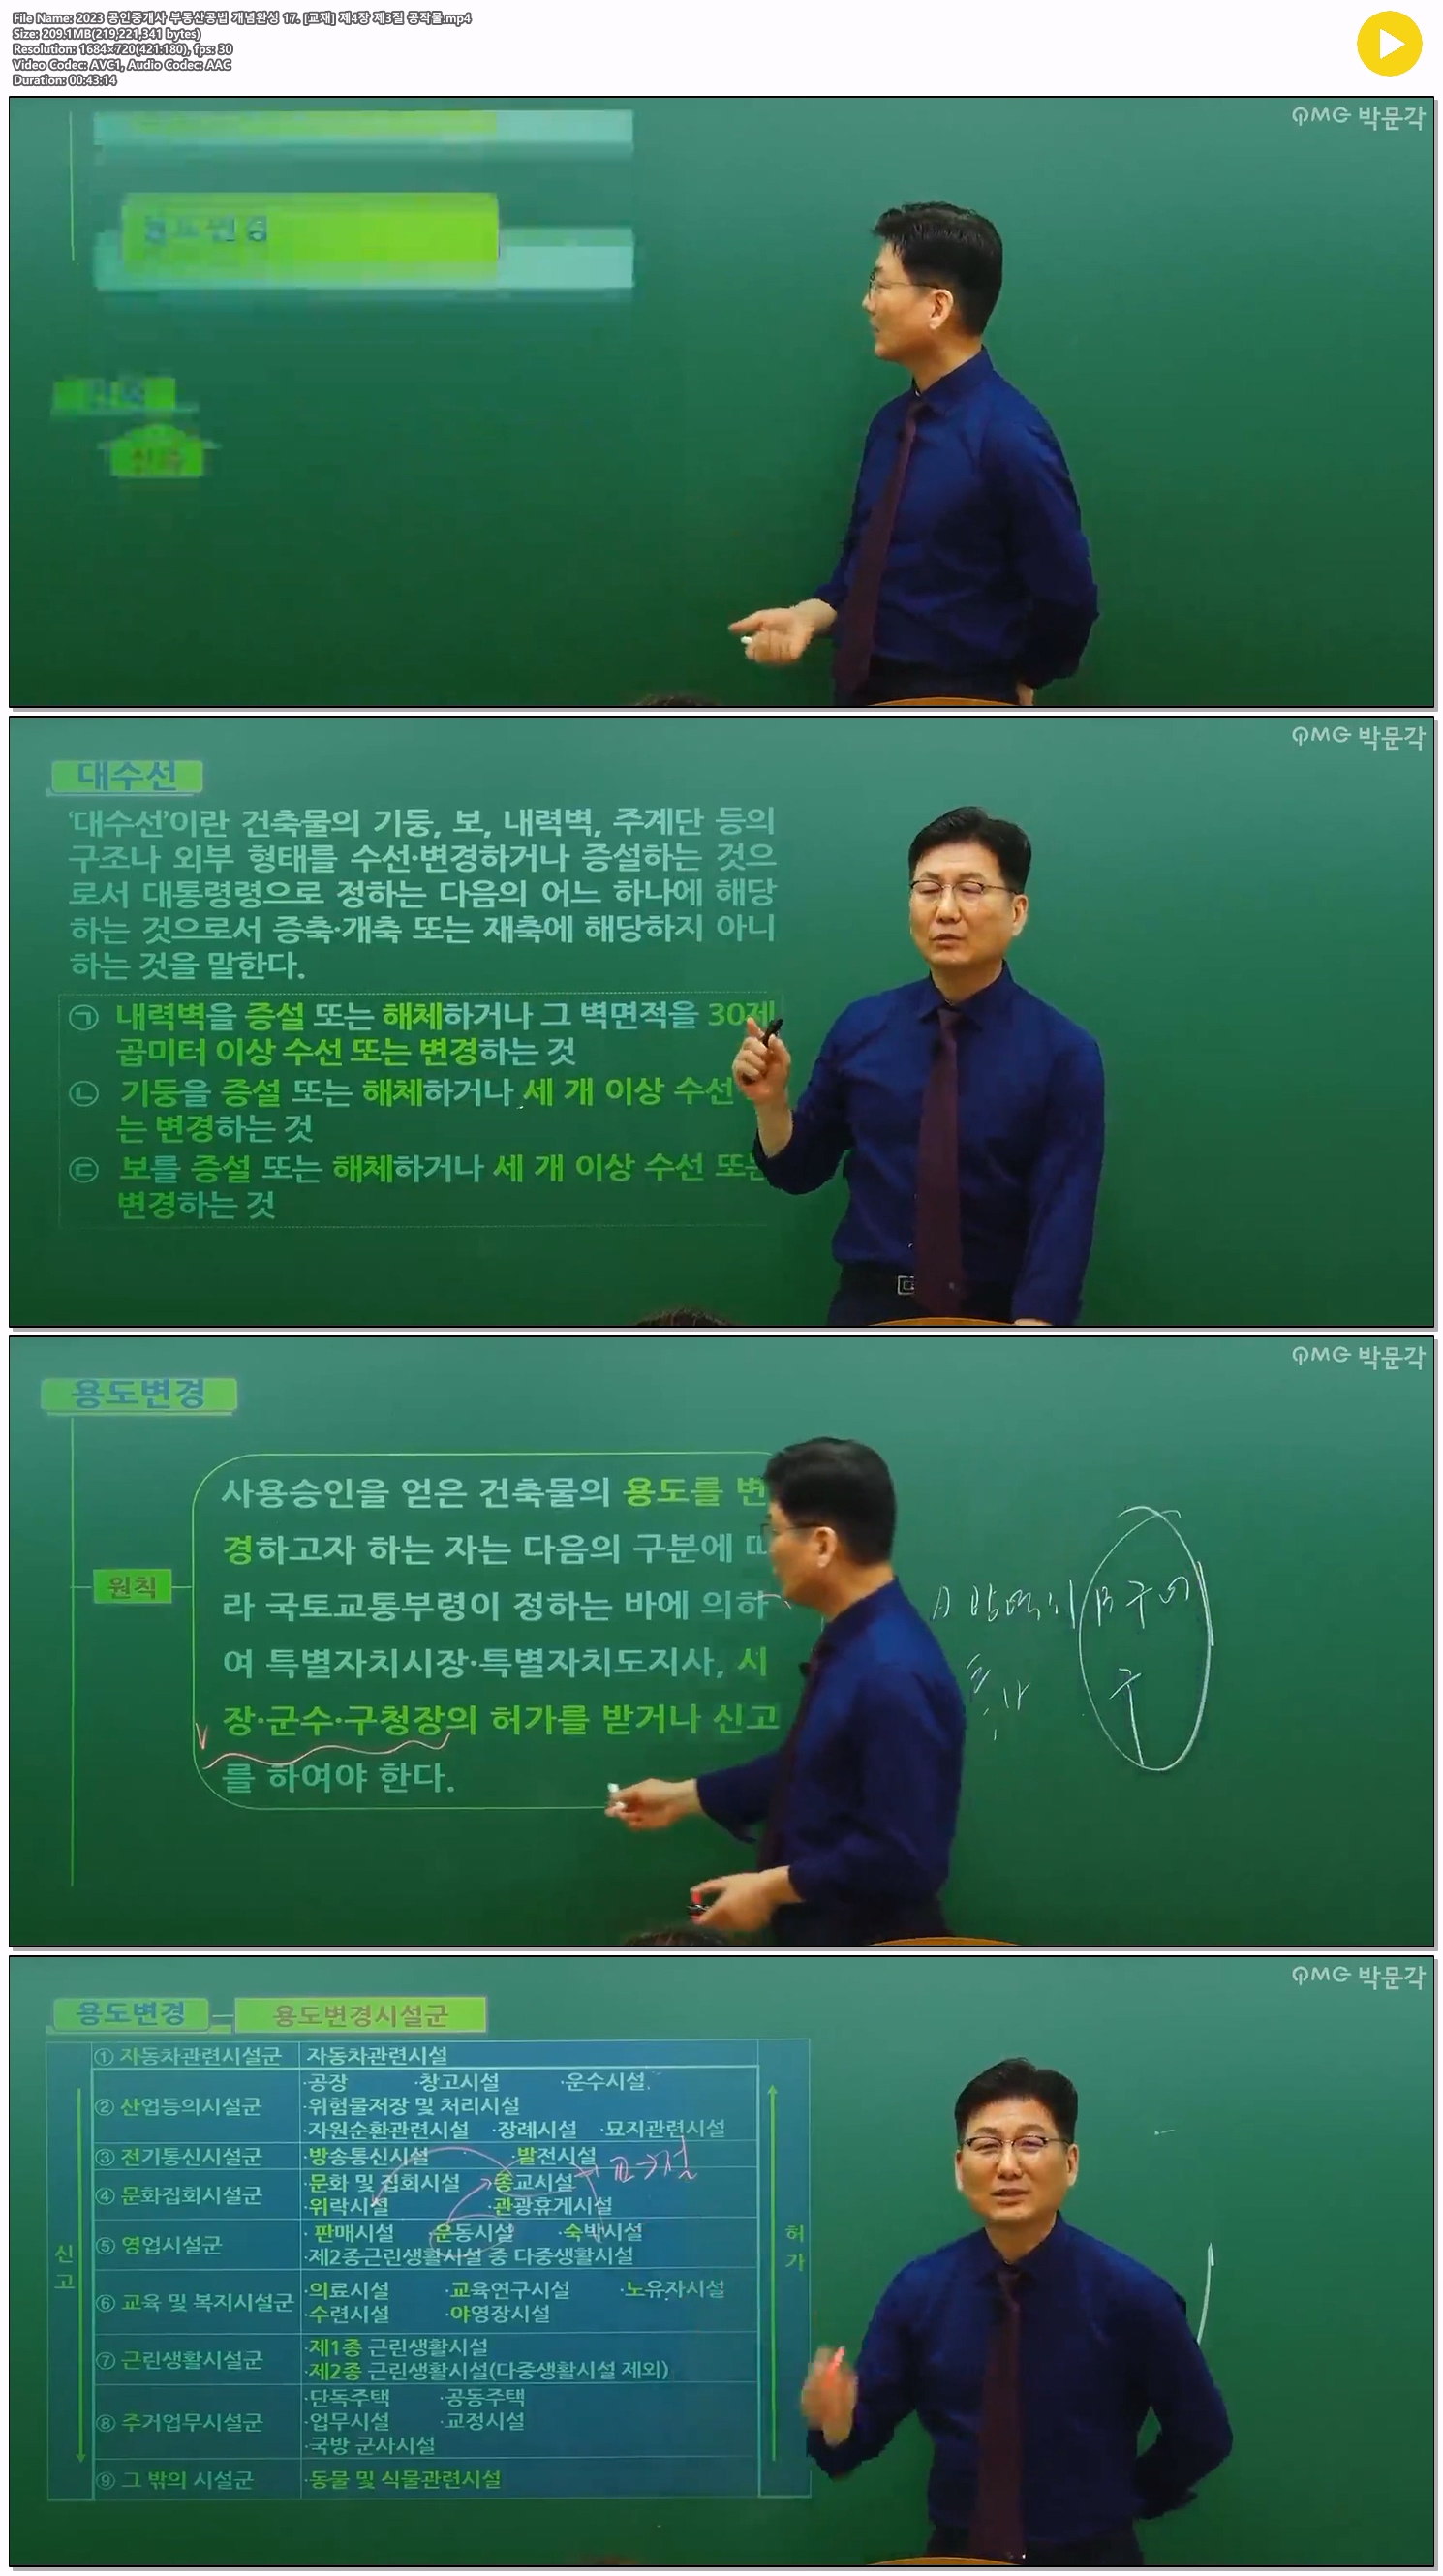 File Name: 2023 공인중개사 부동산공법 개념완성 17. [교재] 제4장 제3절 공작물.mp4
Size: 209.1MB(219,221,341 bytes)
Resolution: 1684×720(421:180), fps: 30
Video Codec: AVC1, Audio Codec: AAC
Duration: 00:43:14
PMG 박문각
PMG 박문각
대수선
'대수선'이란 건축물의 기둥, 보, 내력벽, 주계단 등의
구조나 외부 형태를 수선·변경하거나 증설하는 것으
로서 대통령령으로 정하는 다음의 어느 하나에 해당
하는 것으로서 증축·개축 또는 재축에 해당하지 아니
하는 것을 말한다.
㉠ 내력벽을 증설 또는 해체하거나 그 벽면적을 30제
곱미터 이상 수선 또는 변경하는 것
㉡ 기둥을 증설 또는 해체하거나 세 개 이상 수선
는 변경하는 것
㉢ 보를 증설 또는 해체하거나 세 개 이상 수선 또는
변경하는 것
PMG 박문각
용도변경
원칙
사용승인을 얻은 건축물의 용도를 변
경하고자 하는 자는 다음의 구분에 따
라 국토교통부령이 정하는 바에 의하
여 특별자치시장·특별자치도지사, 시
장·군수·구청장의 허가를 받거나 신고
를 하여야 한다.
PMG 박문각
용도변경 용도변경시설군
① 자동차관련시설군 자동차관련시설
② 산업등의시설군 ·공장 ·창고시설 ·운수시설
·위험물저장 및 처리시설
·자원순환관련시설 ·장례시설 ·묘지관련시설
③ 전기통신시설군 ·방송통신시설 ·발전시설
④ 문화집회시설군 ·문화 및 집회시설 ·종교시설
·위락시설 ·관광휴게시설
⑤ 영업시설군 ·판매시설 ·운동시설 ·숙박시설
·제2종근린생활시설 중 다중생활시설
⑥ 교육 및 복지시설군 ·의료시설 ·교육연구시설 ·노유자시설
·수련시설 ·야영장시설
⑦ 근린생활시설군 ·제1종 근린생활시설
·제2종 근린생활시설(다중생활시설 제외)
⑧ 주거업무시설군 ·단독주택 ·공동주택
·업무시설 ·교정시설
·국방 군사시설
⑨ 그 밖의 시설군 ·동물 및 식물관련시설
신고
허가